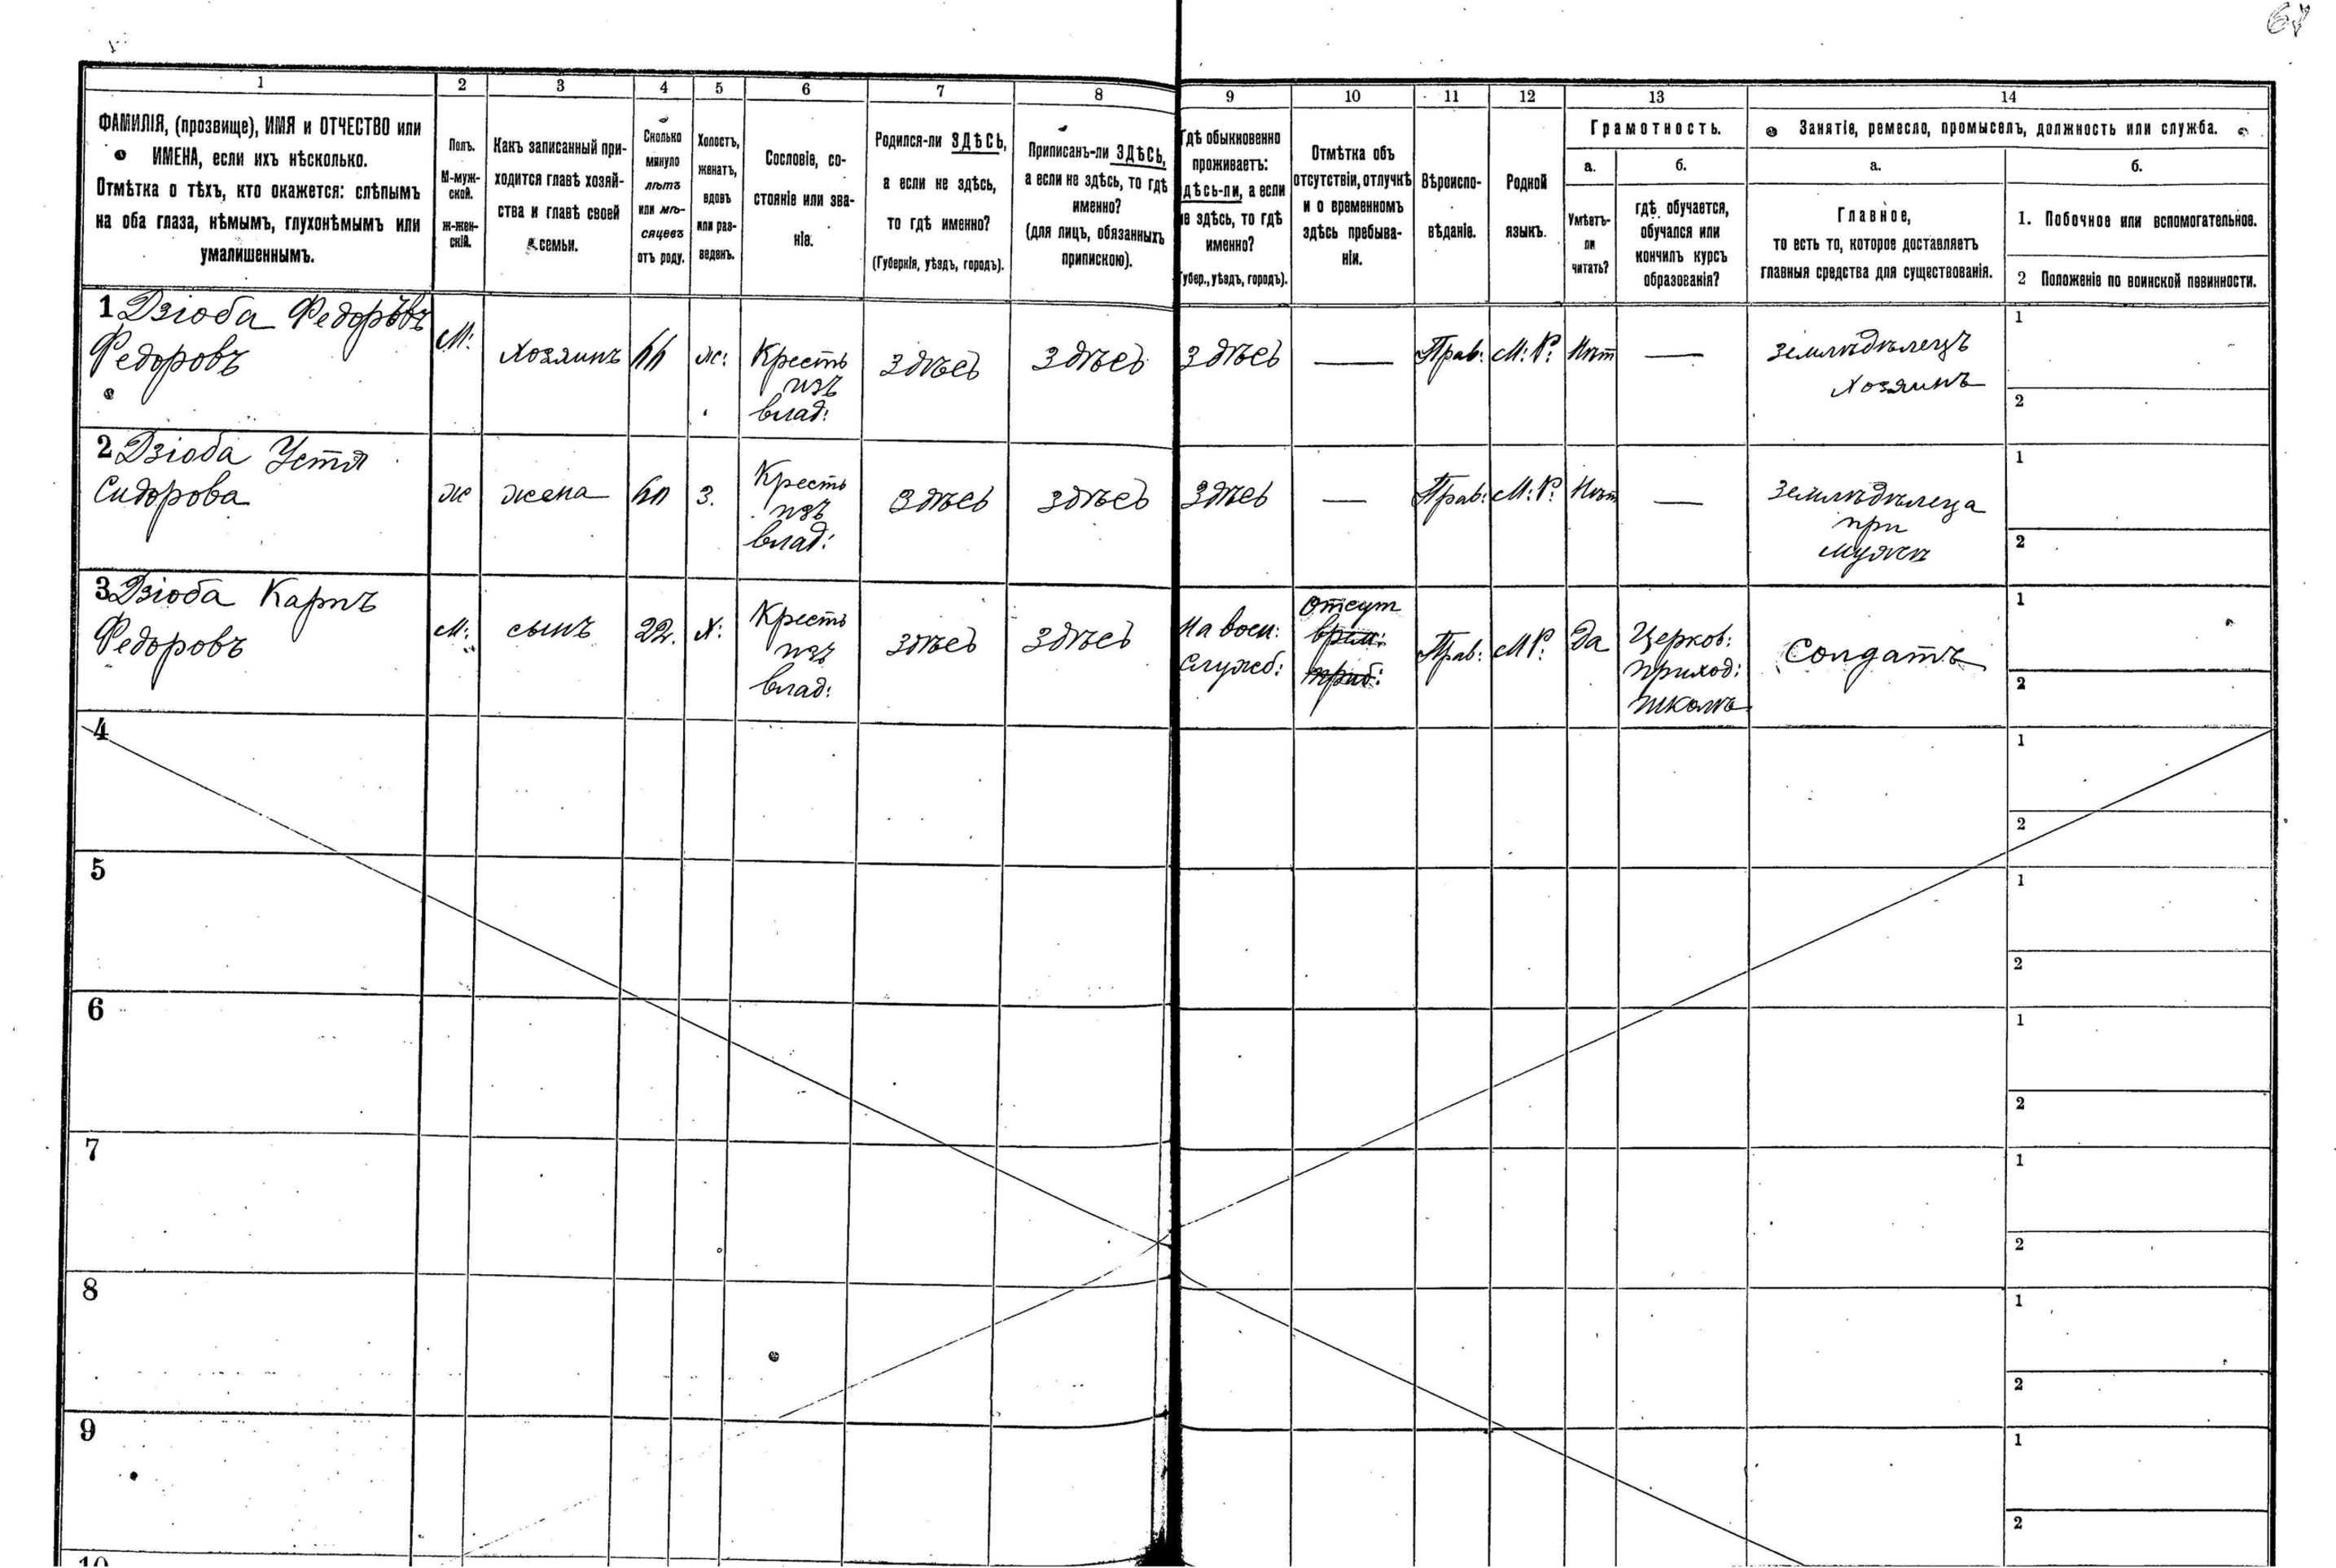 67
1 2 3 4 5 6 7 8 9 10 11 12 13 14
ФАМИЛІЯ, (прозвище), ИМЯ и ОТЧЕСТВО или
ИМЕНА, если ихъ нѣсколько.
Отмѣтка о тѣхъ, кто окажется: слѣпымъ
на оба глаза, нѣмымъ, глухонѣмымъ или
умалишеннымъ.
Полъ.
М-муж-
ской.
Ж-жен-
скій.
Какъ записанный при-
ходится главѣ хозяй-
ства и главѣ своей
семьи.
Сколько
минуло
лѣтъ
или мѣ-
сяцевъ
отъ роду.
Холостъ,
женатъ,
вдовъ
или раз-
веденъ.
Сословіе, со-
стояніе или зва-
ніе.
Родился-ли ЗДѢСЬ,
а если не здѣсь,
то гдѣ именно?
(Губернія, уѣздъ, городъ).
Приписанъ-ли ЗДѢСЬ,
а если не здѣсь, то гдѣ
именно?
(для лицъ, обязанныхъ
припискою).
Гдѣ обыкновенно
проживаетъ:
дѣсь-ли, а если
не здѣсь, то гдѣ
именно?
убер., уѣздъ, городъ).
Отмѣтка объ
отсутствіи, отлучкѣ
и о временномъ
здѣсь пребыва-
ніи.
Вѣроиспо-
вѣданіе.
Родной
языкъ.
Грамотность.
а.
Умѣетъ-
ли
читать?
б.
гдѣ обучается,
обучался или
кончилъ курсъ
образованія?
Занятіе, ремесло, промыселъ, должность или служба.
а.
Главное,
то есть то, которое доставляетъ
главныя средства для существованія.
б.
1. Побочное или вспомогательное.
2 Положеніе по воинской повинности.
1 Дзіоба Федоръ
Федоровъ
М:
Хозяинъ
ж:
Кресть
изъ
влад:
Здѣсь
Здѣсь
Здѣсь
—
Прав:
М: Р:
Нѣт
—
Землѣдѣлецъ
Хозяинъ
1
2
2 Дзіоба Устя
Сидорова
ж
жена
З.
Кресть
изъ
влад:
Здѣсь
Здѣсь
Здѣсь
—
Прав:
М: Р:
Нѣт
—
Землѣдѣлеца
при
мужѣ
1
2
3 Дзіоба Карпъ
Федоровъ
М:
сынъ
22.
Х:
Кресть
изъ
влад:
Здѣсь
Здѣсь
На воен:
Служб:
Отсут
врем:
Прав:
М Р:
Да
Церков:
приход:
школѣ
Солдатъ
1
2
4
1
2
5
1
2
6
1
2
7
1
2
8
1
2
9
1
2
10